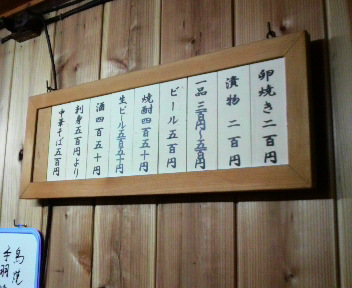 卵焼き 二百円
漬物 二百円
一品 三百円〜五百円
ビール 五百円
焼酎 四百五十円
生ビール 五百五十円
酒 四百五十円
刺身 五百円より
中華そば 五百円
手羽